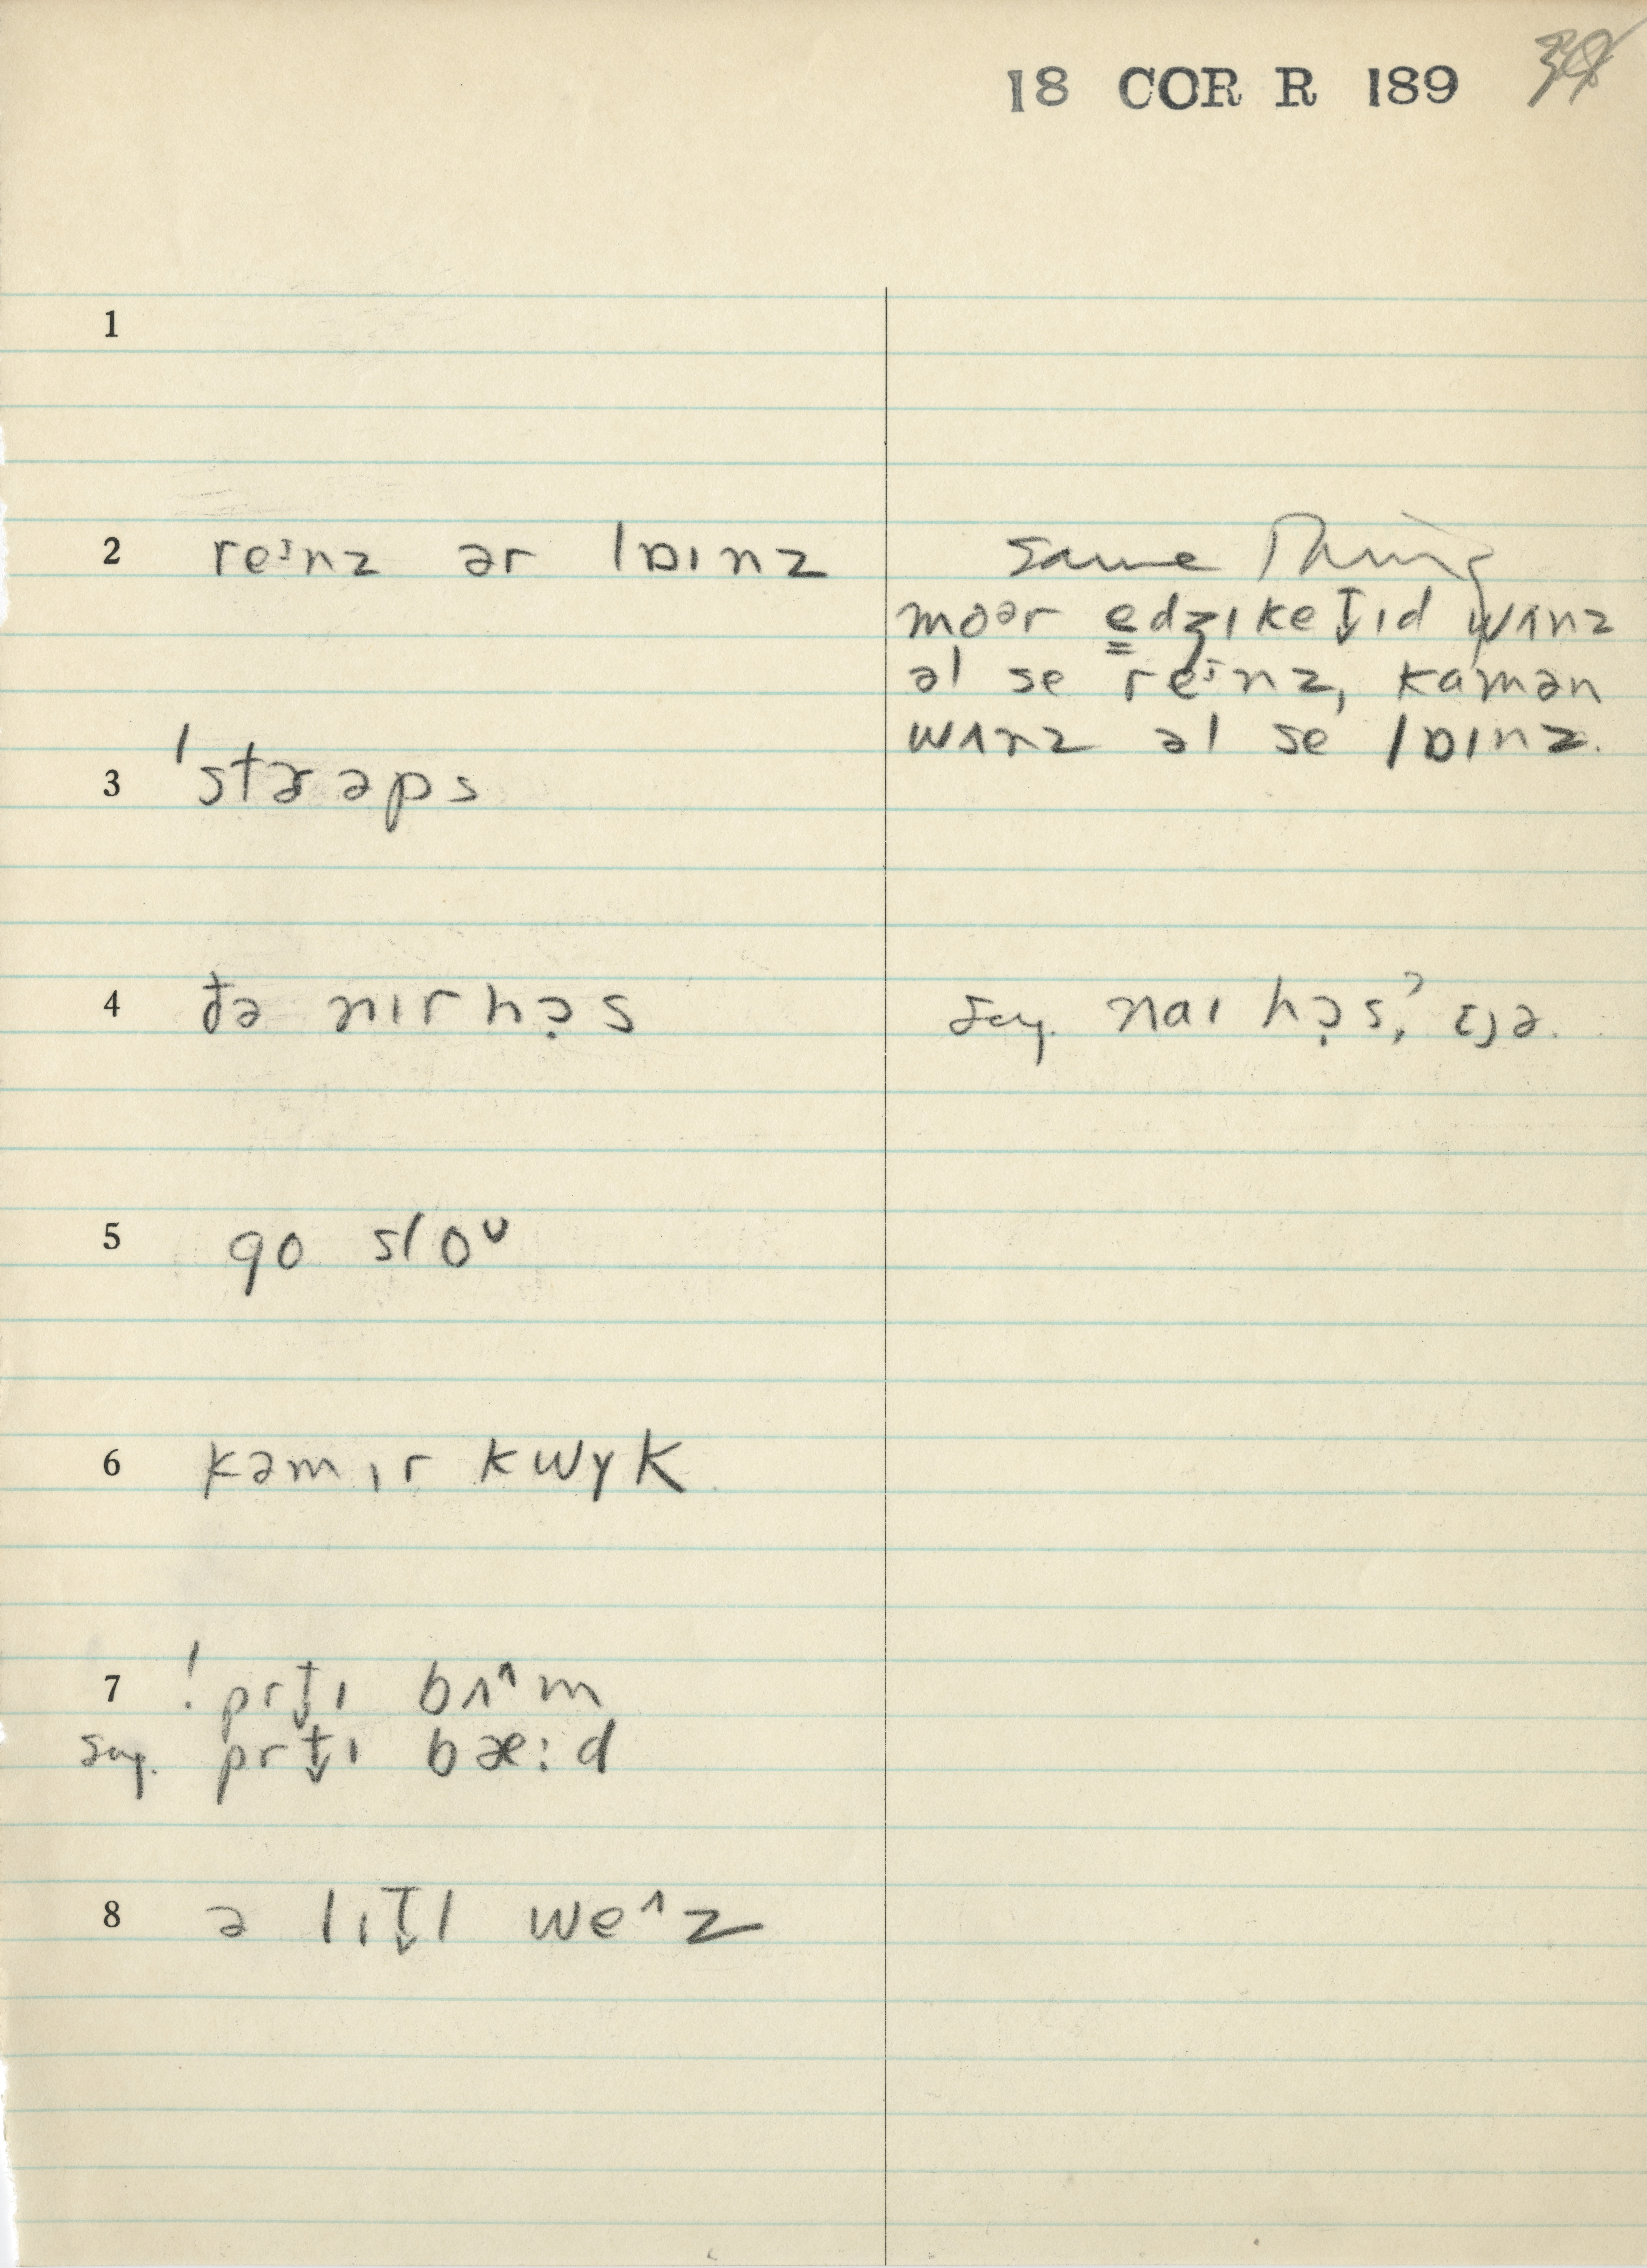 18 COR R 189
1
2 reɪnz ər lɒɪnz
same thing
moər e̳dʒɪket̬ɪd wʌnz
əl se reɪnz, kamən
wʌnz əl se lɒɪnz.
3 ˈstɚəps
4 đə nɪrhə̣s
sug. naɪ hə̣s,ˀ
5 go sloᶸ
6 kəmɪr kwyk
7 ! prt̬ɪ bʌ^m
sug. prt̬ɪ bæ:d
8 ə lɪt̬l we^z